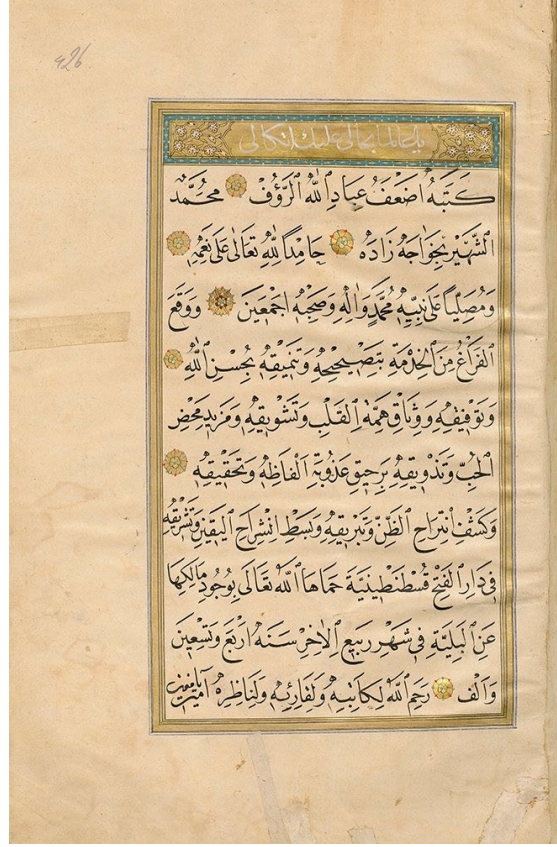 426
كَتَبَهُ اَضْعَفُ عِبَادِ اللّٰهِ الرَّؤُفْ محُمَّد
الشَّهِيْرْ بِخَوَاجَهْ زَادَهْ حَامِدًا لِلّٰهِ تَعَالٰى عَلٰى نِعَمِهْ
وَمُصَلِّيًا عَلٰى نَبِيِّهِ مُحَمَّدٍ وَاٰلِهِ وَصَحْبِهِ اَجْمَعِينَ وَوَقَعَ
الفَرَاغُ مِنَ الْخِدْمَةِ بِتَصْحِيحِهِ وَتَنْمِيقِهِ بِحُسْنِ اللّٰهِ
وَتَوْفِيقِهِ وَوِثَاقِ هِمَّةِ الْقَلْبِ وَتَشْوِيقِهِ وَمَزِيدِ مَحْضِ
الْحُبِّ وَتَذْوِيقِهِ بِرَحِيقِ عُذُوبَةِ اَلْفَاظِهِ وَتَحْقِيقِهِ
وَكَشْفِ الظَّنِّ وَتَبْرِيقِهِ وَبَسْطِ انْشِرَاحِ الْيَقِينِ وَتَشْرِيقِهِ
فِى دَارِ الْفَتْحِ قُسْطَنْطِينِيَّةَ حَمَاهَا اللّٰهُ تَعَالٰى بِوُجُودِ مَالِكِهَا
عَنِ الْبَلِيَّةِ فِى شَهْرِ رَبِيعِ الْاٰخِرْ سَنَهْ اَرْبَعَ وَتِسْعِينَ
وَاَلْف رَحِمَ اللّٰهُ لِكَاتِبِهِ وَلِقَارِئِهِ وَلِنَاظِرِهْ آمين يامعين